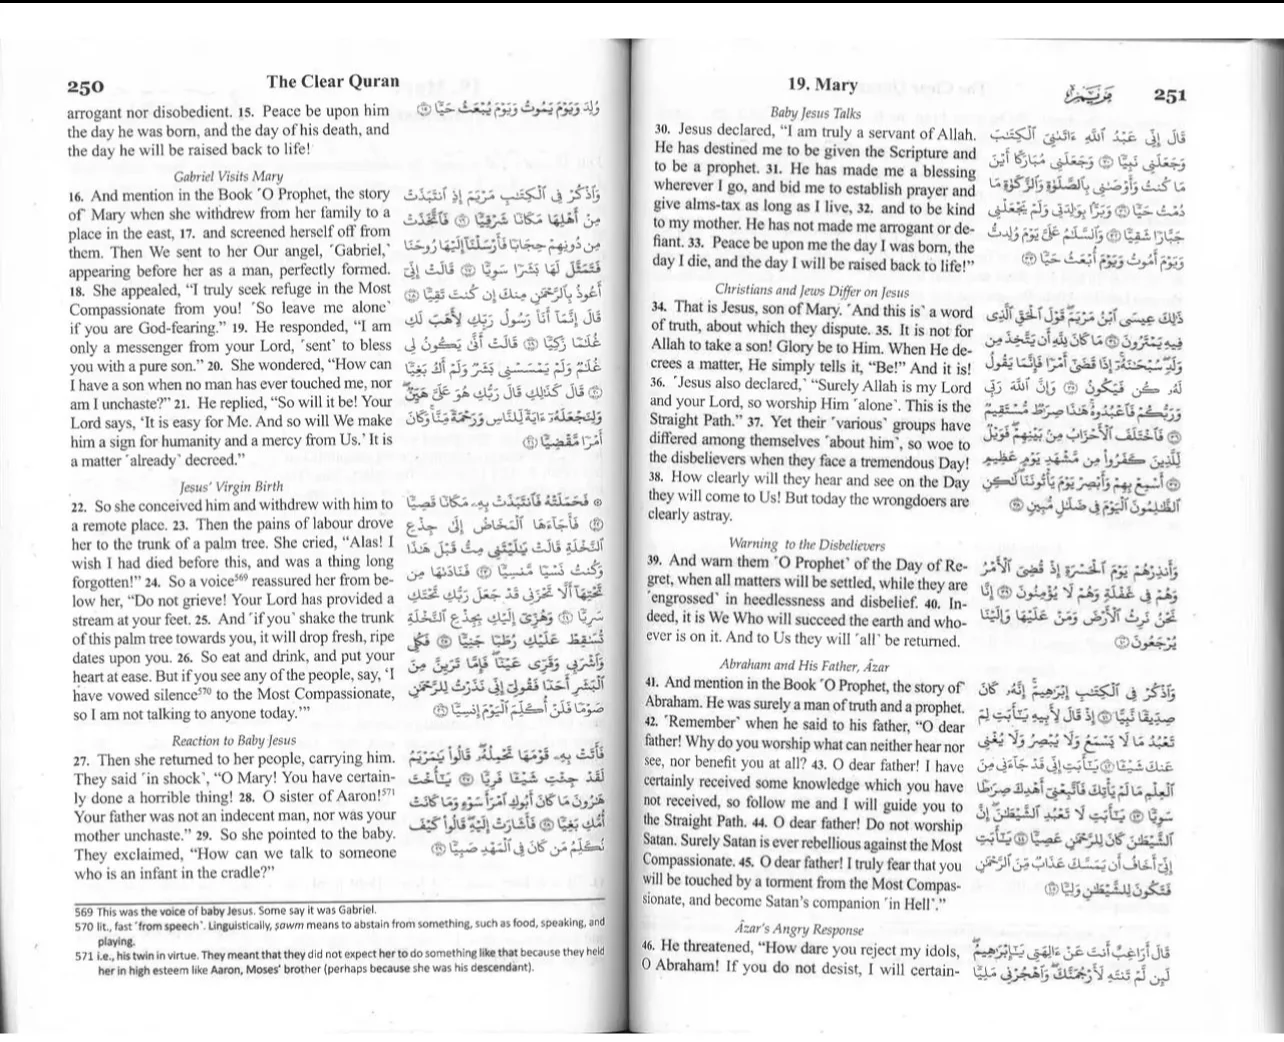 250
The Clear Quran
arrogant nor disobedient. 15. Peace be upon him
the day he was born, and the day of his death, and
the day he will be raised back to life!
وُلِدَ وَيَوْمَ يَمُوتُ وَيَوْمَ يُبْعَثُ حَيًّا ١٥
Gabriel Visits Mary
16. And mention in the Book ˹O Prophet, the story
of˺ Mary when she withdrew from her family to a
place in the east, 17. and screened herself off from
them. Then We sent to her Our angel, ˹Gabriel,˺
appearing before her as a man, perfectly formed.
18. She appealed, “I truly seek refuge in the Most
Compassionate from you! ˹So leave me alone˺
if you are God-fearing.” 19. He responded, “I am
only a messenger from your Lord, ˹sent˺ to bless
you with a pure son.” 20. She wondered, “How can
I have a son when no man has ever touched me, nor
am I unchaste?” 21. He replied, “So will it be! Your
Lord says, ‘It is easy for Me. And so will We make
him a sign for humanity and a mercy from Us.’ It is
a matter ˹already˺ decreed.”
وَٱذْكُرْ فِى ٱلْكِتَٰبِ مَرْيَمَ إِذِ ٱنتَبَذَتْ
مِنْ أَهْلِهَا مَكَانًا شَرْقِيًّا ١٦ فَٱتَّخَذَتْ
مِن دُونِهِمْ حِجَابًا فَأَرْسَلْنَآ إِلَيْهَا رُوحَنَا
فَتَمَثَّلَ لَهَا بَشَرًا سَوِيًّا ١٧ قَالَتْ إِنِّىٓ
أَعُوذُ بِٱلرَّحْمَٰنِ مِنكَ إِن كُنتَ تَقِيًّا ١٨
قَالَ إِنَّمَآ أَنَا۠ رَسُولُ رَبِّكِ لِأَهَبَ لَكِ
غُلَٰمًا زَكِيًّا ١٩ قَالَتْ أَنَّىٰ يَكُونُ لِى
غُلَٰمٌ وَلَمْ يَمْسَسْنِى بَشَرٌ وَلَمْ أَكُ بَغِيًّا
٢٠ قَالَ كَذَٰلِكِ قَالَ رَبُّكِ هُوَ عَلَىَّ هَيِّنٌ
وَلِنَجْعَلَهُۥٓ ءَايَةً لِّلنَّاسِ وَرَحْمَةً مِّنَّا وَكَانَ
أَمْرًا مَّقْضِيًّا ٢١
Jesus’ Virgin Birth
22. So she conceived him and withdrew with him to
a remote place. 23. Then the pains of labour drove
her to the trunk of a palm tree. She cried, “Alas! I
wish I had died before this, and was a thing long
forgotten!” 24. So a voice569 reassured her from be-
low her, “Do not grieve! Your Lord has provided a
stream at your feet. 25. And ˹if you˺ shake the trunk
of this palm tree towards you, it will drop fresh, ripe
dates upon you. 26. So eat and drink, and put your
heart at ease. But if you see any of the people, say, ‘I
have vowed silence570 to the Most Compassionate,
so I am not talking to anyone today.’”
۞ فَحَمَلَتْهُ فَٱنتَبَذَتْ بِهِۦ مَكَانًا قَصِيًّا
٢٢ فَأَجَآءَهَا ٱلْمَخَاضُ إِلَىٰ جِذْعِ
ٱلنَّخْلَةِ قَالَتْ يَٰلَيْتَنِى مِتُّ قَبْلَ هَٰذَا
وَكُنتُ نَسْيًا مَّنسِيًّا ٢٣ فَنَادَىٰهَا مِن
تَحْتِهَآ أَلَّا تَحْزَنِى قَدْ جَعَلَ رَبُّكِ تَحْتَكِ
سَرِيًّا ٢٤ وَهُزِّىٓ إِلَيْكِ بِجِذْعِ ٱلنَّخْلَةِ
تُسَٰقِطْ عَلَيْكِ رُطَبًا جَنِيًّا ٢٥ فَكُلِى
وَٱشْرَبِى وَقَرِّى عَيْنًا فَإِمَّا تَرَيِنَّ مِنَ
ٱلْبَشَرِ أَحَدًا فَقُولِىٓ إِنِّى نَذَرْتُ لِلرَّحْمَٰنِ
صَوْمًا فَلَنْ أُكَلِّمَ ٱلْيَوْمَ إِنسِيًّا ٢٦
Reaction to Baby Jesus
27. Then she returned to her people, carrying him.
They said ˹in shock˺, “O Mary! You have certain-
ly done a horrible thing! 28. O sister of Aaron!571
Your father was not an indecent man, nor was your
mother unchaste.” 29. So she pointed to the baby.
They exclaimed, “How can we talk to someone
who is an infant in the cradle?”
فَأَتَتْ بِهِۦ قَوْمَهَا تَحْمِلُهُۥ قَالُوا۟ يَٰمَرْيَمُ
لَقَدْ جِئْتِ شَيْـًٔا فَرِيًّا ٢٧ يَٰٓأُخْتَ
هَٰرُونَ مَا كَانَ أَبُوكِ ٱمْرَأَ سَوْءٍ وَمَا كَانَتْ
أُمُّكِ بَغِيًّا ٢٨ فَأَشَارَتْ إِلَيْهِ قَالُوا۟ كَيْفَ
نُكَلِّمُ مَن كَانَ فِى ٱلْمَهْدِ صَبِيًّا ٢٩
569 This was the voice of baby Jesus. Some say it was Gabriel.
570 lit., fast ˹from speech˺. Linguistically, ṣawm means to abstain from something, such as food, speaking, and
playing.
571 i.e., his twin in virtue. They meant that they did not expect her to do something like that because they held
her in high esteem like Aaron, Moses’ brother (perhaps because she was his descendant).
19. Mary
251
Baby Jesus Talks
30. Jesus declared, “I am truly a servant of Allah.
He has destined me to be given the Scripture and
to be a prophet. 31. He has made me a blessing
wherever I go, and bid me to establish prayer and
give alms-tax as long as I live, 32. and to be kind
to my mother. He has not made me arrogant or de-
fiant. 33. Peace be upon me the day I was born, the
day I die, and the day I will be raised back to life!”
قَالَ إِنِّى عَبْدُ ٱللَّهِ ءَاتَىٰنِىَ ٱلْكِتَٰبَ
وَجَعَلَنِى نَبِيًّا ٣٠ وَجَعَلَنِى مُبَارَكًا أَيْنَ
مَا كُنتُ وَأَوْصَٰنِى بِٱلصَّلَوٰةِ وَٱلزَّكَوٰةِ مَا
دُمْتُ حَيًّا ٣١ وَبَرًّۢا بِوَٰلِدَتِى وَلَمْ يَجْعَلْنِى
جَبَّارًا شَقِيًّا ٣٢ وَٱلسَّلَٰمُ عَلَىَّ يَوْمَ وُلِدتُّ
وَيَوْمَ أَمُوتُ وَيَوْمَ أُبْعَثُ حَيًّا ٣٣
Christians and Jews Differ on Jesus
34. That is Jesus, son of Mary. ˹And this is˺ a word
of truth, about which they dispute. 35. It is not for
Allah to take a son! Glory be to Him. When He de-
crees a matter, He simply tells it, “Be!” And it is!
36. ˹Jesus also declared,˺ “Surely Allah is my Lord
and your Lord, so worship Him ˹alone˺. This is the
Straight Path.” 37. Yet their ˹various˺ groups have
differed among themselves ˹about him˺, so woe to
the disbelievers when they face a tremendous Day!
38. How clearly will they hear and see on the Day
they will come to Us! But today the wrongdoers are
clearly astray.
ذَٰلِكَ عِيسَى ٱبْنُ مَرْيَمَ قَوْلَ ٱلْحَقِّ ٱلَّذِى
فِيهِ يَمْتَرُونَ ٣٤ مَا كَانَ لِلَّهِ أَن يَتَّخِذَ مِن
وَلَدٍ سُبْحَٰنَهُۥٓ إِذَا قَضَىٰٓ أَمْرًا فَإِنَّمَا يَقُولُ
لَهُۥ كُن فَيَكُونُ ٣٥ وَإِنَّ ٱللَّهَ رَبِّى
وَرَبُّكُمْ فَٱعْبُدُوهُ هَٰذَا صِرَٰطٌ مُّسْتَقِيمٌ
٣٦ فَٱخْتَلَفَ ٱلْأَحْزَابُ مِنۢ بَيْنِهِمْ فَوَيْلٌ
لِّلَّذِينَ كَفَرُوا۟ مِن مَّشْهَدِ يَوْمٍ عَظِيمٍ
٣٧ أَسْمِعْ بِهِمْ وَأَبْصِرْ يَوْمَ يَأْتُونَنَا لَٰكِنِ
ٱلظَّٰلِمُونَ ٱلْيَوْمَ فِى ضَلَٰلٍ مُّبِينٍ ٣٨
Warning to the Disbelievers
39. And warn them ˹O Prophet˺ of the Day of Re-
gret, when all matters will be settled, while they are
˹engrossed˺ in heedlessness and disbelief. 40. In-
deed, it is We Who will succeed the earth and who-
ever is on it. And to Us they will ˹all˺ be returned.
وَأَنذِرْهُمْ يَوْمَ ٱلْحَسْرَةِ إِذْ قُضِىَ ٱلْأَمْرُ
وَهُمْ فِى غَفْلَةٍ وَهُمْ لَا يُؤْمِنُونَ ٣٩ إِنَّا
نَحْنُ نَرِثُ ٱلْأَرْضَ وَمَنْ عَلَيْهَا وَإِلَيْنَا
يُرْجَعُونَ ٤٠
Abraham and His Father, Âzar
41. And mention in the Book ˹O Prophet, the story of˺
Abraham. He was surely a man of truth and a prophet.
42. ˹Remember˺ when he said to his father, “O dear
father! Why do you worship what can neither hear nor
see, nor benefit you at all? 43. O dear father! I have
certainly received some knowledge which you have
not received, so follow me and I will guide you to
the Straight Path. 44. O dear father! Do not worship
Satan. Surely Satan is ever rebellious against the Most
Compassionate. 45. O dear father! I truly fear that you
will be touched by a torment from the Most Compas-
sionate, and become Satan’s companion ˹in Hell˺.”
وَٱذْكُرْ فِى ٱلْكِتَٰبِ إِبْرَٰهِيمَ إِنَّهُۥ كَانَ
صِدِّيقًا نَّبِيًّا ٤١ إِذْ قَالَ لِأَبِيهِ يَٰٓأَبَتِ لِمَ
تَعْبُدُ مَا لَا يَسْمَعُ وَلَا يُبْصِرُ وَلَا يُغْنِى
عَنكَ شَيْـًٔا ٤٢ يَٰٓأَبَتِ إِنِّى قَدْ جَآءَنِى مِنَ
ٱلْعِلْمِ مَا لَمْ يَأْتِكَ فَٱتَّبِعْنِىٓ أَهْدِكَ صِرَٰطًا
سَوِيًّا ٤٣ يَٰٓأَبَتِ لَا تَعْبُدِ ٱلشَّيْطَٰنَ إِنَّ
ٱلشَّيْطَٰنَ كَانَ لِلرَّحْمَٰنِ عَصِيًّا ٤٤ يَٰٓأَبَتِ
إِنِّىٓ أَخَافُ أَن يَمَسَّكَ عَذَابٌ مِّنَ ٱلرَّحْمَٰنِ
فَتَكُونَ لِلشَّيْطَٰنِ وَلِيًّا ٤٥
Âzar’s Angry Response
46. He threatened, “How dare you reject my idols,
O Abraham! If you do not desist, I will certain-
قَالَ أَرَاغِبٌ أَنتَ عَنْ ءَالِهَتِى يَٰٓإِبْرَٰهِيمُ
لَئِن لَّمْ تَنتَهِ لَأَرْجُمَنَّكَ وَٱهْجُرْنِى مَلِيًّا